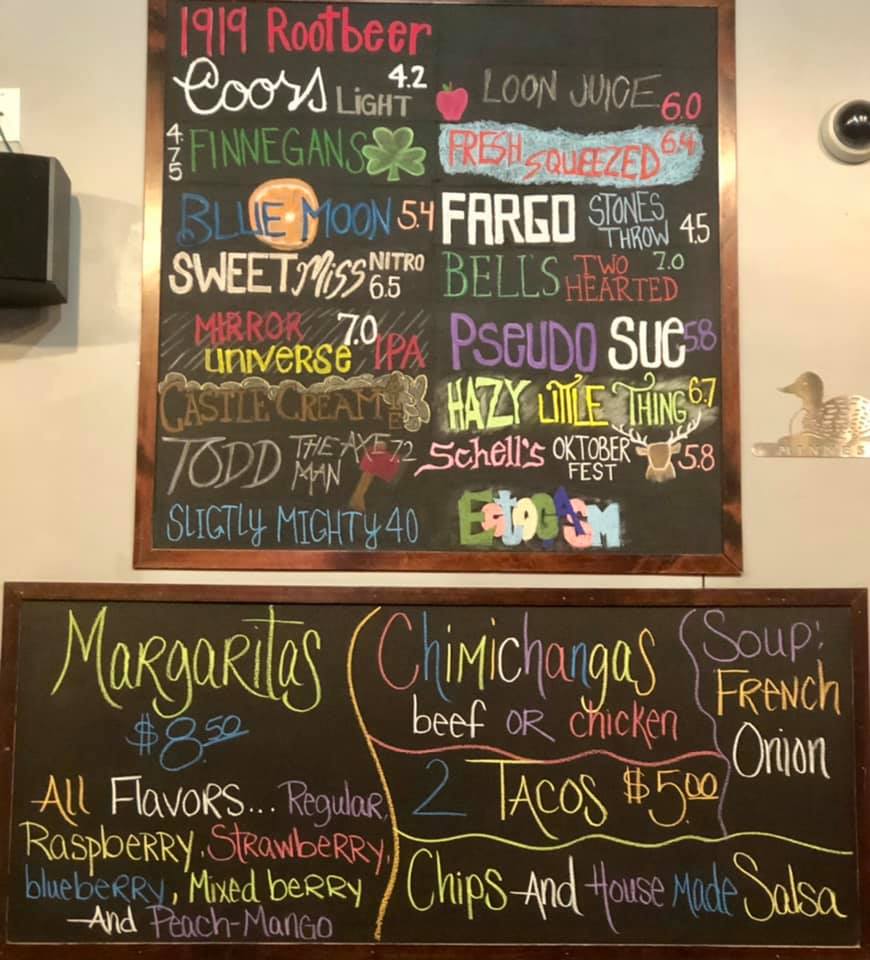 1919 Rootbeer
Coors LIGHT 4.2
4.75 FINNEGANS
BLUE MOON 5.4
SWEET Miss NITRO 6.5
MIRROR universe 7.0 IPA
CASTLE CREAM ALE
TODD THE AXE MAN 7.2
SLIGTLY MIGHTY 40
LOON JUICE 6.0
FRESH SQUEEZED 6.4
FARGO STONES THROW 4.5
BELL'S TWO HEARTED 7.0
PSEUDO SUE 5.8
HAZY LITTLE THING 6.7
Schell's OKTOBER FEST 5.8
MINNES
Margaritas
$8.50
All Flavors... Regular,
Raspberry, Strawberry,
blueberry, Mixed berry
And Peach-Mango
Chimichangas
beef OR chicken
2 TACOS $5.00
Chips And House Made Salsa
Soup:
French
Onion